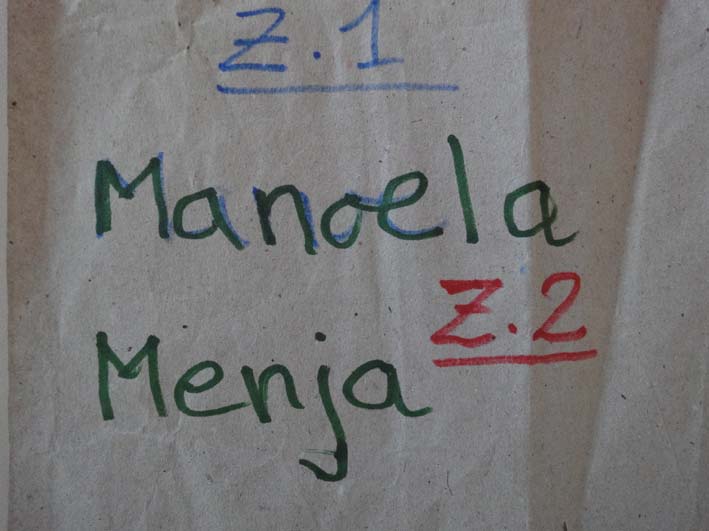 Z.1
Manoela
Z.2
Menja